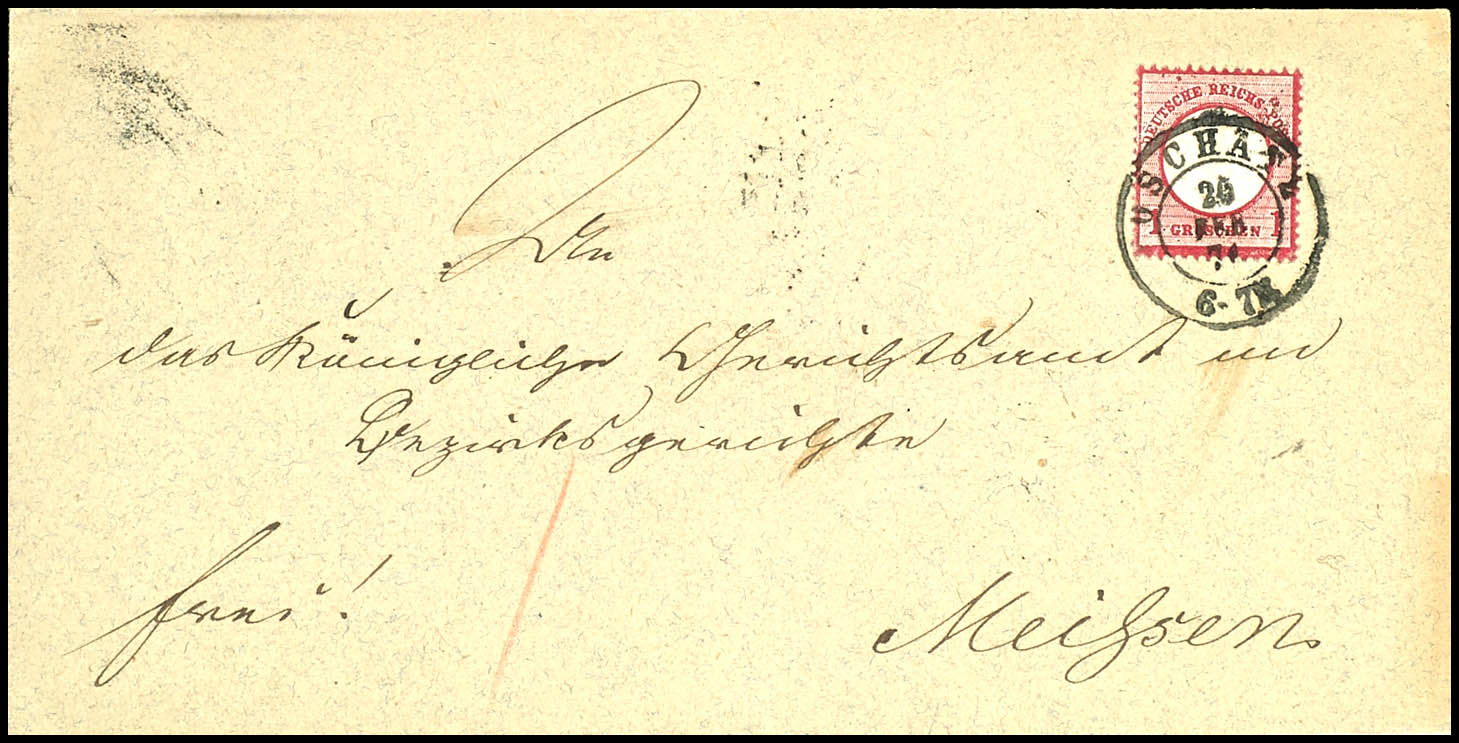 DEUTSCHE REICHS-POST
1 GROSCHEN 1
OSCHATZ
FEB
74
6-7N
An
das Königliche Gerichtsamt im
Bezirksgerichte
frei!
Meißsen